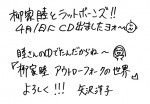 柳家睦とラットボーンズ!!
4月1日にCD出ましたヨォ〜
睦さんのゆでたんだからね〜
『柳家睦 アウトローフォークの世界』
よろしく!!! 矢沢洋子